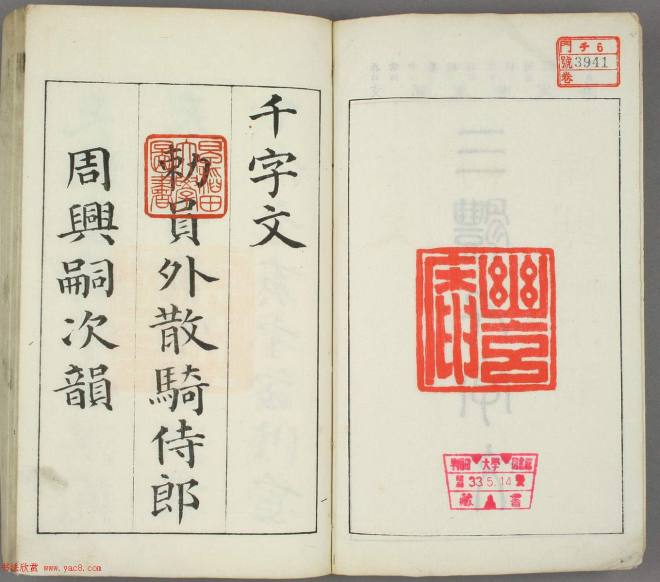 門 チ 6
號 3941
卷
千字文
勅員外散騎侍郎
周興嗣次韻
大學
33.5.14
藏書
書法欣赏 www.yac8.com